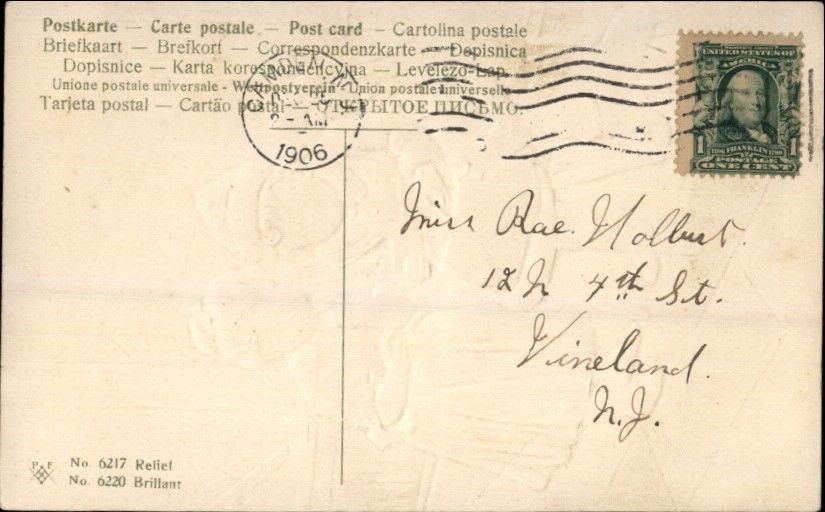 Postkarte — Carte postale — Post card — Cartolina postale
Briefkaart — Brefkort — Correspondenzkarte — Dopisnica
Dopisnice — Karta korespondencyjna — Levelező-Lap.
Unione postale universale - Weltpostverein - Union postale universelle
Tarjeta postal — Cartão postal — ОТКРЫТОЕ ПИСЬМО.
8 - AM
1906
UNITED STATES OF
AMERICA
1 1706 FRANKLIN 1790 1
POSTAGE
ONE CENT
Miss Rae. Holbert.
12 N 4th St.
Vineland.
N.J.
P F
No. 6217 Relief
No. 6220 Brillant